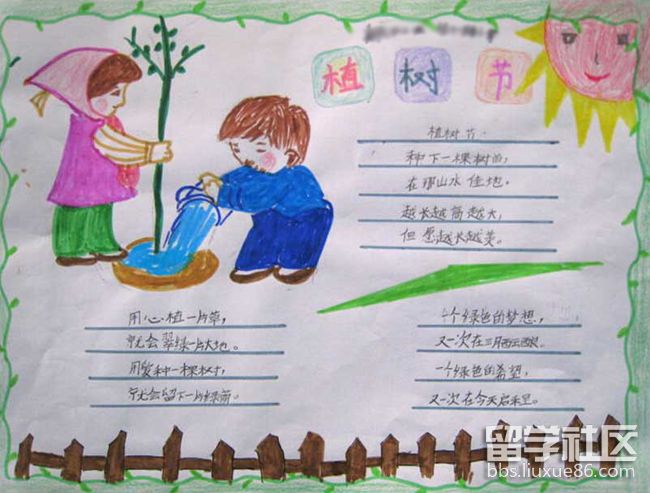 植树节
植树节
种下一棵树苗,
在那山水佳地。
越长越高越大,
但愿越长越美。
用心植一片草,
就会翠绿一大地。
用爱种一棵树,
就会留下一片绿荫。
一个绿色的梦想,
又一次在三月
一个绿色的希望,
又一次在今天启程。
留学社区
bbs.liuxue86.com